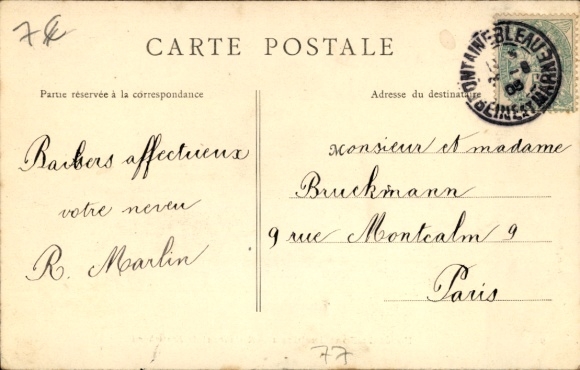 7€
CARTE POSTALE
Partie réservée à la correspondance
Adresse du destinataire
FONTAINEBLEAU
SEINE ET MARNE
Baisers affectueux
votre neveu
R. Marlin
Monsieur et madame
Bruckmann
9 rue Montcalm 9
Paris
77